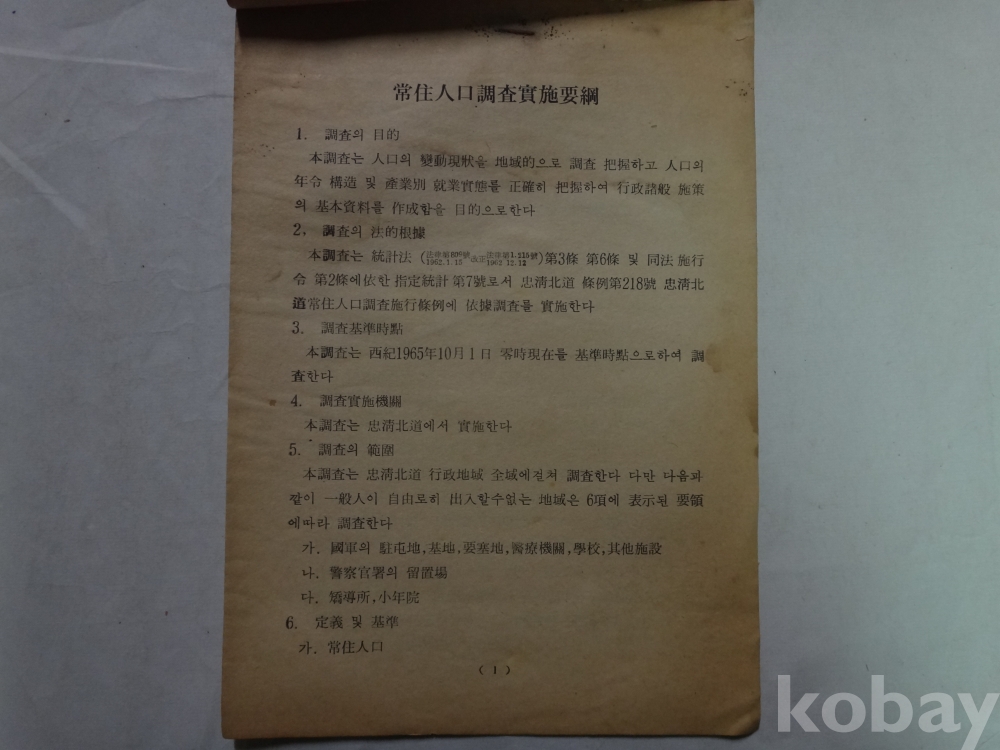 常住人口調査實施要綱
1. 調査의 目的
本調査는 人口의 變動現狀을 地域的으로 調査 把握하고 人口의
年令 構造 및 產業別 就業實態를 正確히 把握하여 行政諸般 施策
의 基本資料를 作成함을 目的으로한다
2, 調査의 法的根據
本調査는 統計法 (法律第 號 1962.1.15 改正 法律第1.215號 1962 12.12)第3條 第6條 및 同法施行
令 第2條에依한 指定統計 第7號로서 忠淸北道 條例第218號 忠淸北
道常住人口調査施行條例에 依據調査를 實施한다
3. 調査基準時點
本調査는 西紀1965年10月1日 零時現在를 基準時點으로하여 調
査한다
4. 調査實施機關
本調査는 忠淸北道에서 實施한다
5. 調査의 範圍
本調査는 忠淸北道 行政地域 全域에걸쳐 調査한다 다만 다음과
같이 一般人이 自由로히 出入할수없는 地域은 6項에 表示된 要領
에따라 調査한다
가. 國軍의 駐屯地,基地,要塞地,醫療機關,學校,其他施設
나. 警察官署의 留置場
다. 矯導所,小年院
6. 定義 및 基準
가. 常住人口
( 1 )
kobay